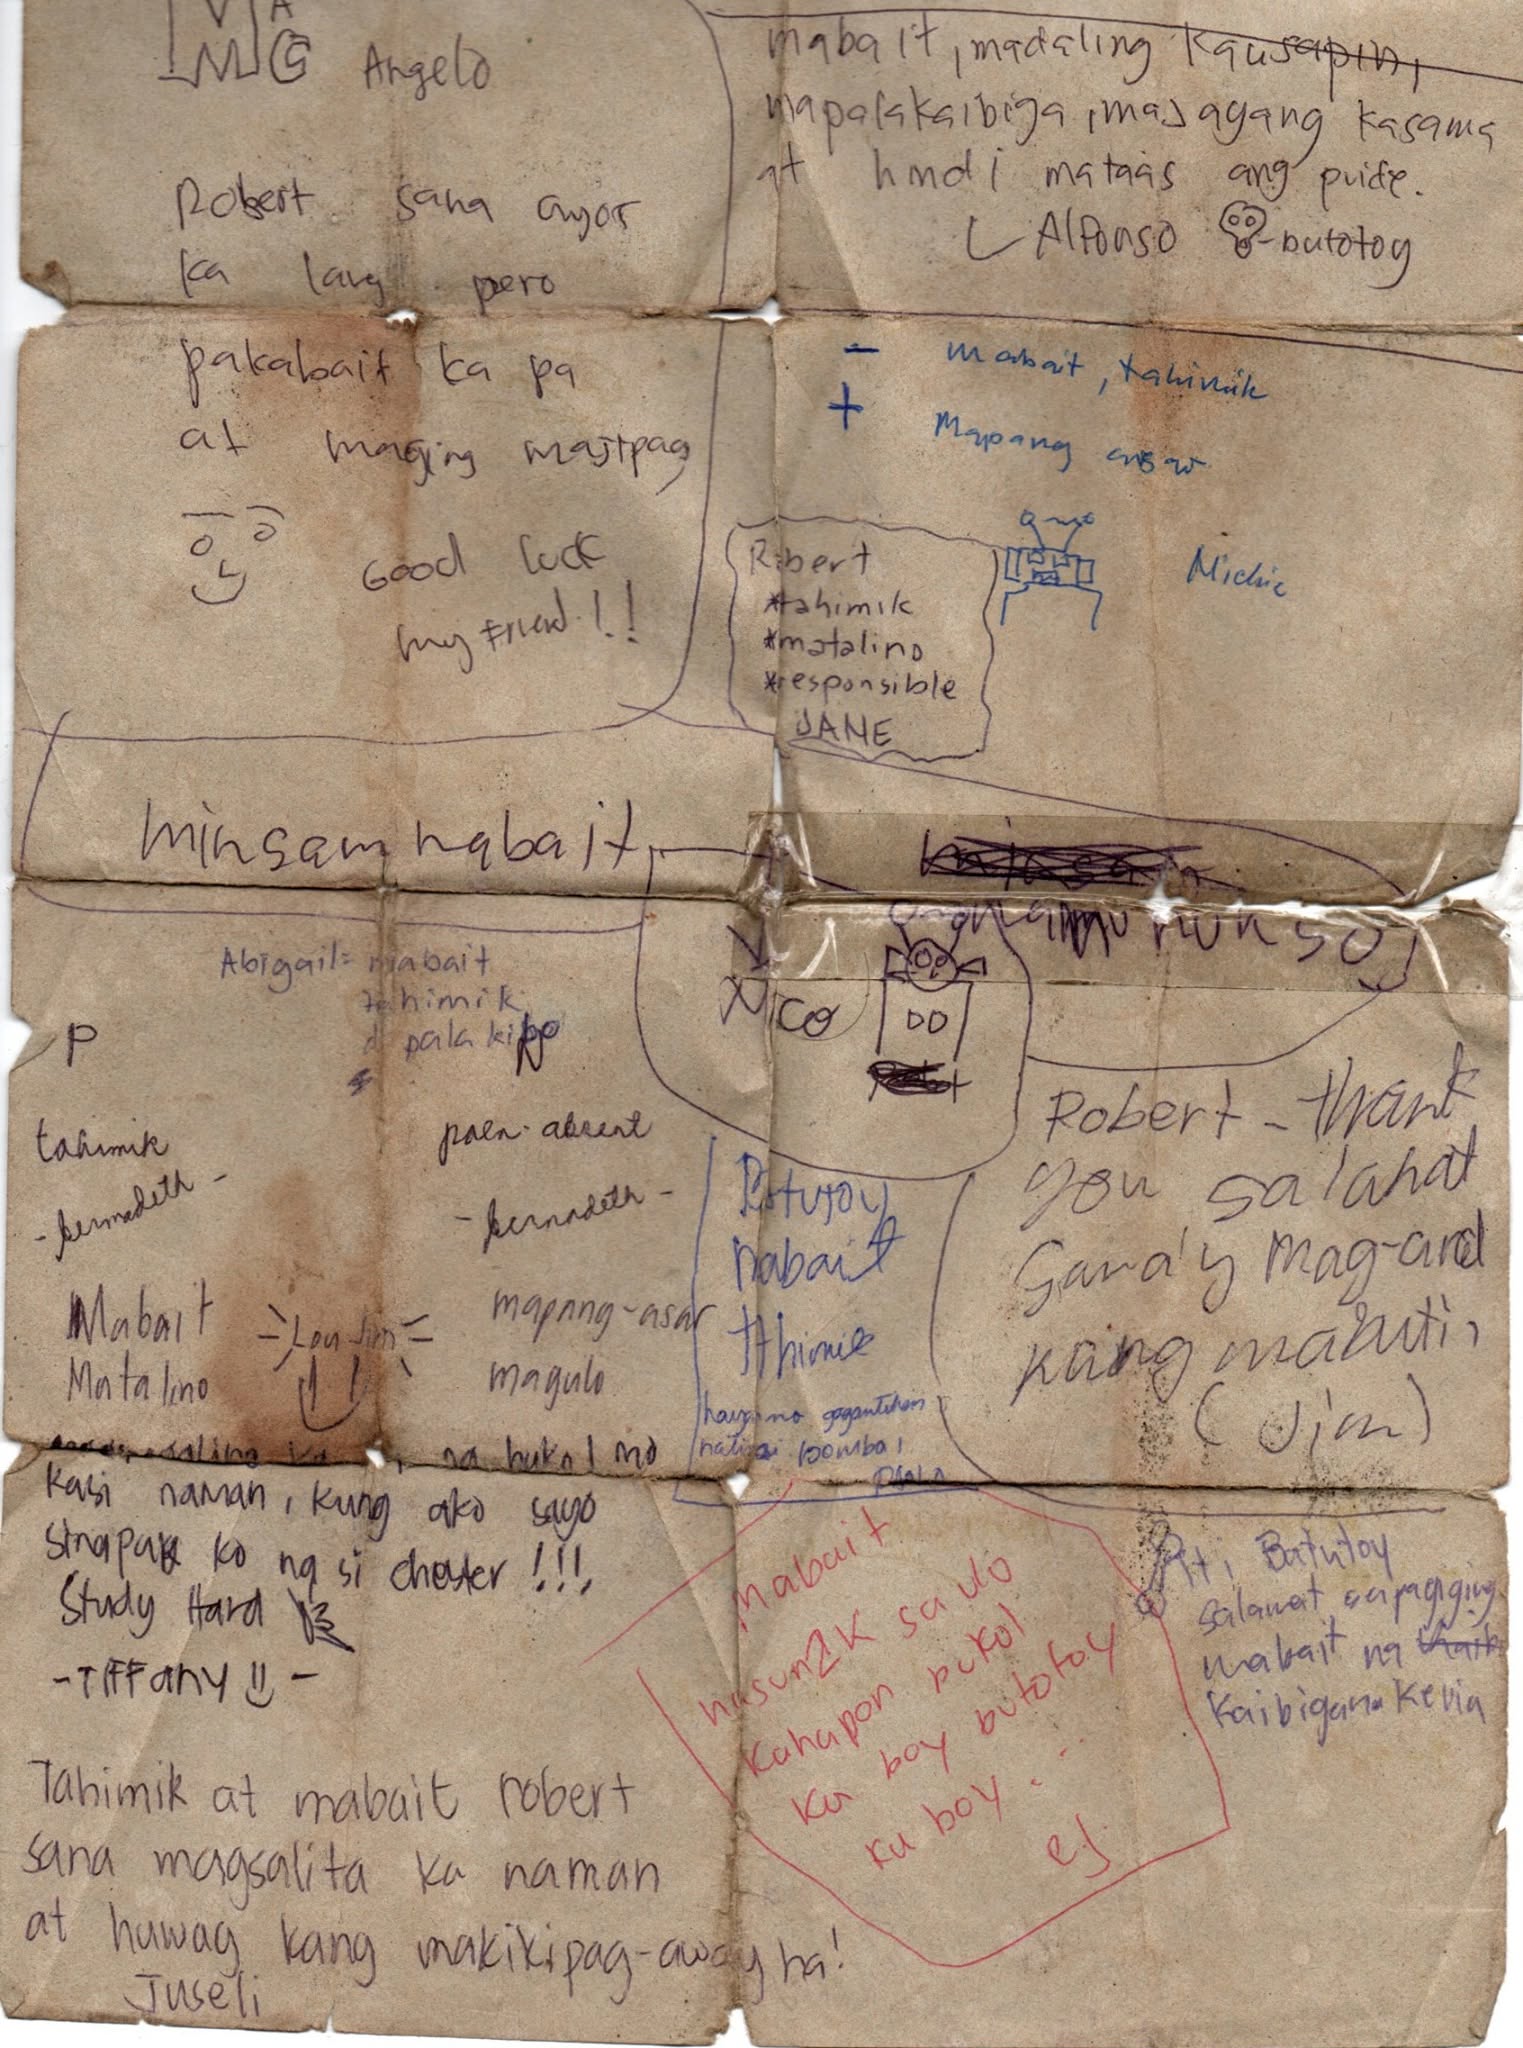 MG Angelo
Robert sana ayos
ka lang pero
pakabait ka pa
at maging masipag
Good luck
my friend!!
mabait, madaling kausapin,
mapalakaibiga, masayang kasama
at hindi mataas ang pride.
Alfonso - butotoy
- mabait, tahimik
+ Mapang asar
Michic
Robert
*tahimik
*matalino
*responsible
JANE
minsam nabait
minsan
nukso
Nico
Abigail= mabait
tahimik
d pala kibo
P
tahimik
- bernadeth -
pala-absent
- bernadeth -
Mabait
Matalino
Lou Jim
mapang-asar
magulo
Bututoy
nabait
tahimik
Robert - thank
you sa lahat
Sana'y mag-aral
kang mabuti,
(Jim)
na bukol mo
kasi naman, kung ako sayo
sinapak ko na si chester!!!,
Study Hard
- TIFFany -
Tahimik at mabait robert
sana magsalita ka naman
at huwag kang makikipag-away ha!
Juseli
Mabait
nasun2k sa ulo
kahapon bukol
ku boy butotoy
ku boy...
e.j.
Batutoy
salamat sa pagiging
mabait na
kaibigan Kevin